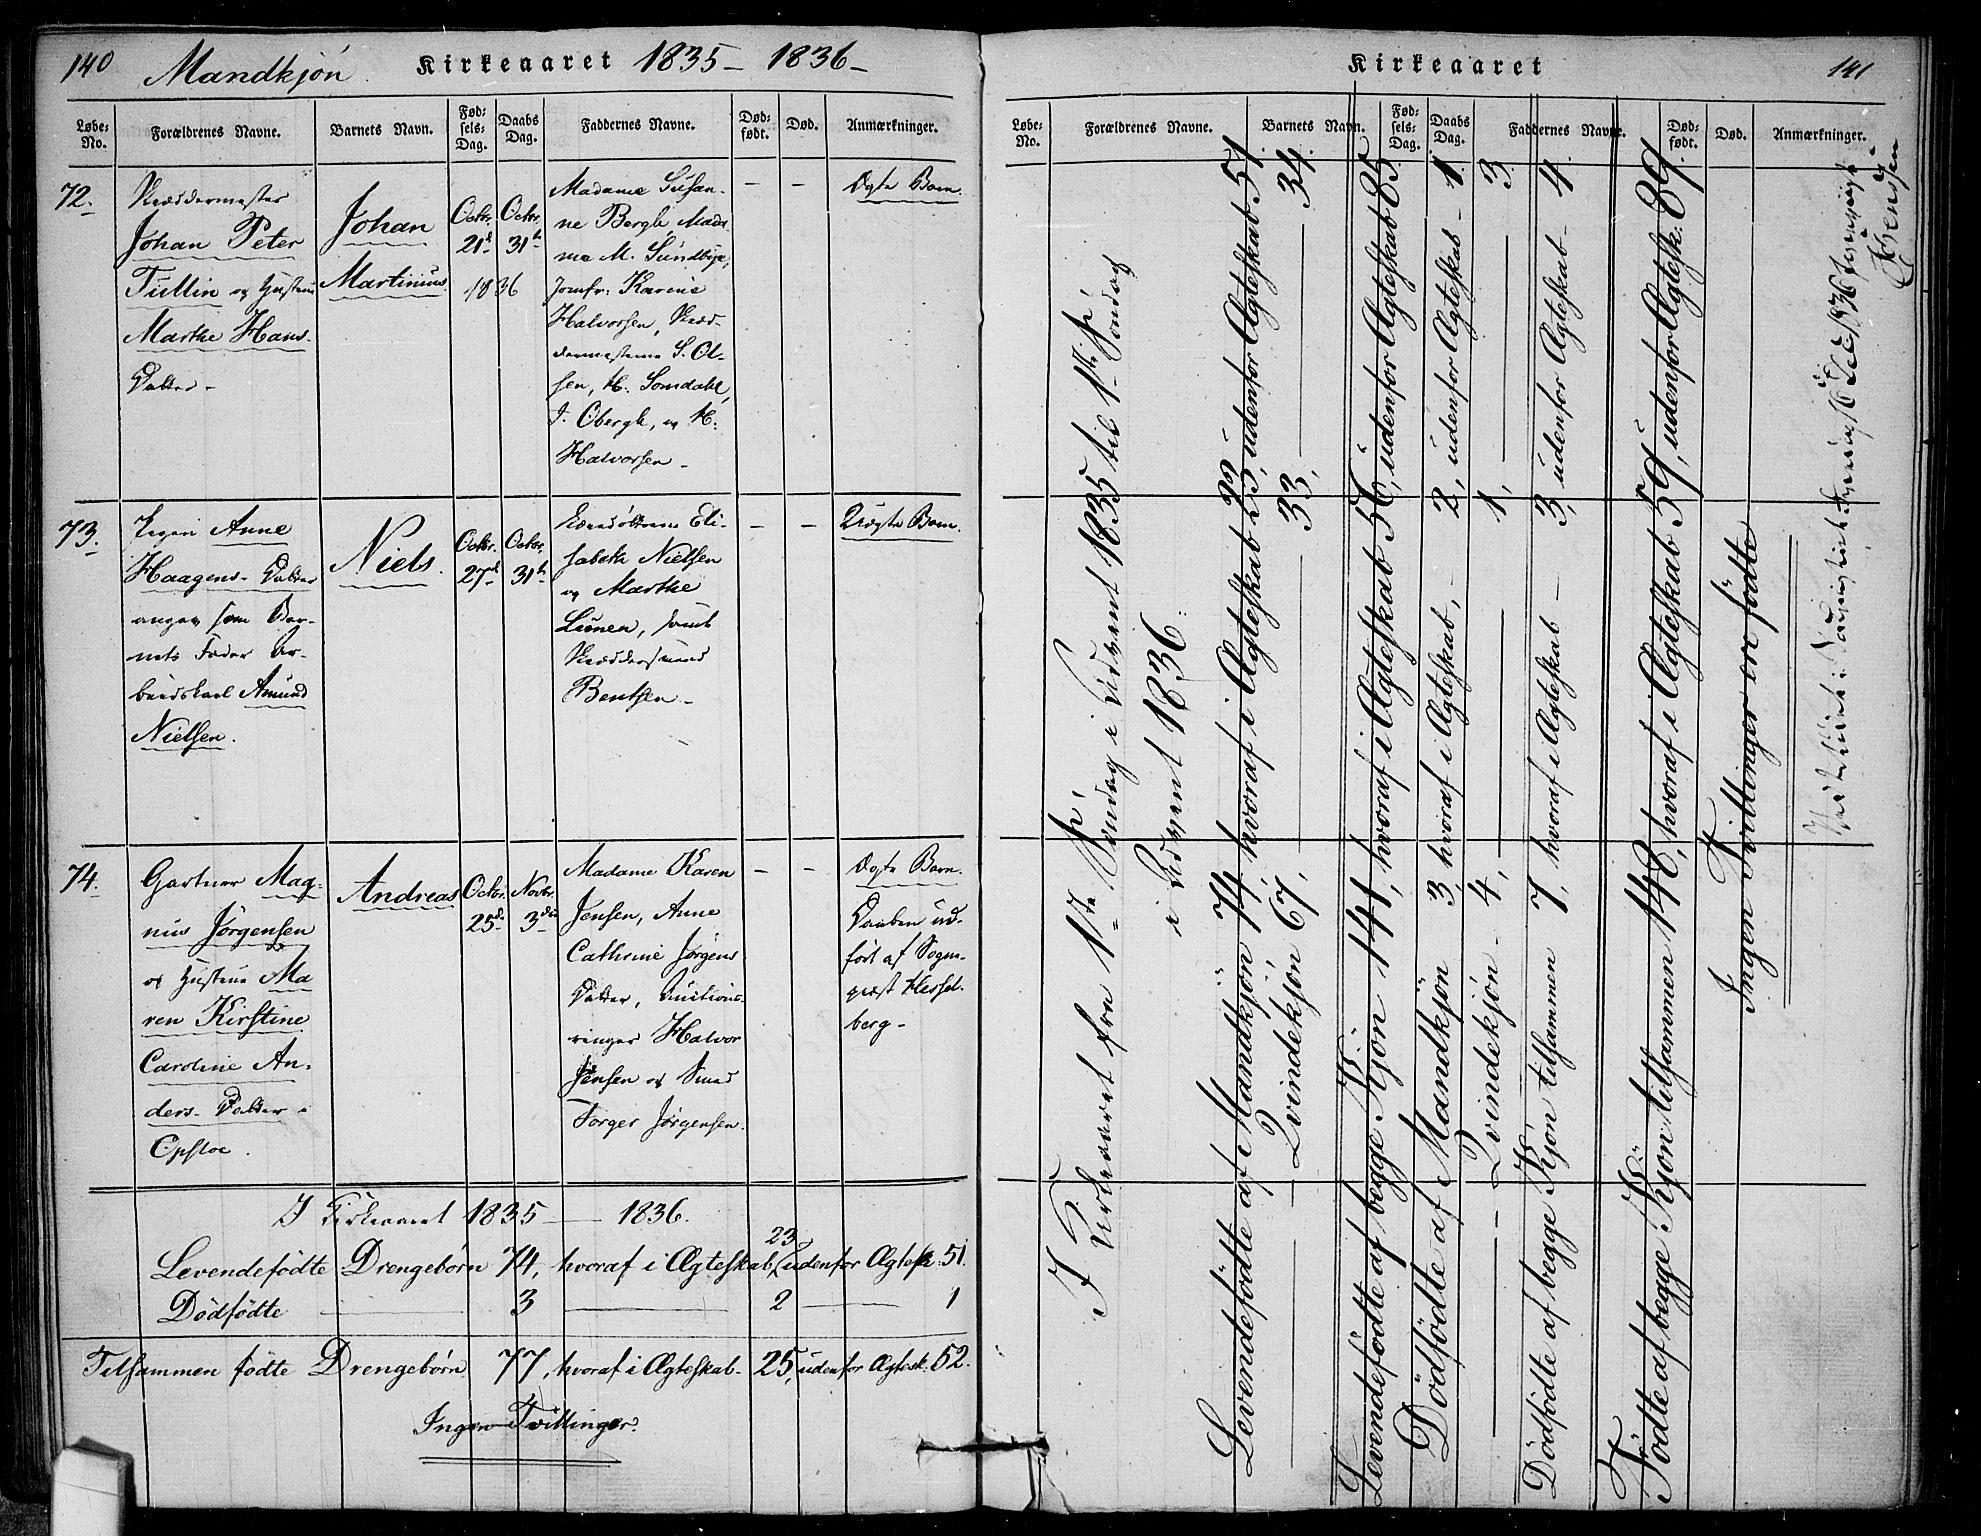 140 Mandkjøn. Kirkeaaret 1835 - 1836 -
Løbe-No. Forældrenes Navne. Barnets Navn. Fødsels-Dag. Daabs Dag. Faddernes Navne. Dødfødt. Død. Anmærkninger.
72.
Skræddermester
Johan Peter
Tullin og Hustrue
Marthe Hans-
Datter -
Johan
Martinius
Octbr. 21d
Octbr. 31te
1836
Madame Susan-
ne Bergh, Mada-
me M. Sundbye,
Jomfr. Karine
Halvorsen, Skræd-
dermesterne S. Ol-
sen, H. Somdahl,
J. Obergh, og H.
Halvorsen -
- -
Ægte Barn.
73.
Pigen Anne
Haagens-Datter
angav som Bar-
nets Fader Ar-
beidskarl Amund
Nielsen.
Niels.
Octbr. 27d
Octbr. 31te
Eli-
sabeth Nielsen
og Marthe
Lunen, samt
Skræddersvend
Bentsen -
- -
Uægte Barn.
74.
Gartner Mag-
nus Jørgensen
og Hustrue Ma
ren Kirstine
Caroline An-
ders-Datter i
Opsloe.
Andreas
Octbr. 25de
Novbr. 3die
Madame Karen
Jensen, Anne
Cathrine Jørgens
Datter,
Halvor
Jensen og Smed
Torger Jørgensen.
- -
Ægte Barn.
Daaben ud-
ført af Sogne-
præst Hessel-
berg -
I Kirkeaaret 1835 — 1836.
Levendefødte Drengebørn 74, hvoraf i Ægteskab, 23, udenfor Ægtesk. 51.
Dödfödte — 3 — 2 — 1
Tilsammen födte Drengebørn 77, hvoraf i Ægteskab - 25, udenfor Ægtesk. 52.
Ingen Tvillinger.
Kirkeaaret 141
Løbe-No. Forældrenes Navne. Barnets Navn. Fødsels-Dag. Daabs Dag. Faddernes Navne. Dødfødt. Død. Anmærkninger.
I Kirkeaaret fra 1ste Søndag i Advent 1835 til 1ste Søndag
i Advent 1836:
Levendefödte af Mandkjön 74, hvoraf i Ægteskab 23, udenfor Ægteskab 51.
— — Qvindekjön 67, — 33, — 34.
Levendefödte af begge Kjön 141, hvoraf i Ægteskab 56, udenfor Ægteskab 85.
Dödfödte af Mandkjön 3, hvoraf i Ægteskab, - 2, udenfor Ægteskab - 1.
— — Qvindekjön - 4, — 1, — 3.
Dödfödte af begge Kjön tilsammen 7, hvoraf i Ægteskab - 3, udenfor Ægteskab - 4.
Födte af begge Kjön tilsammen 148, hvoraf i Ægteskab 59, udenfor Ægtesk. 89.
Ingen Tvillinger ere födte